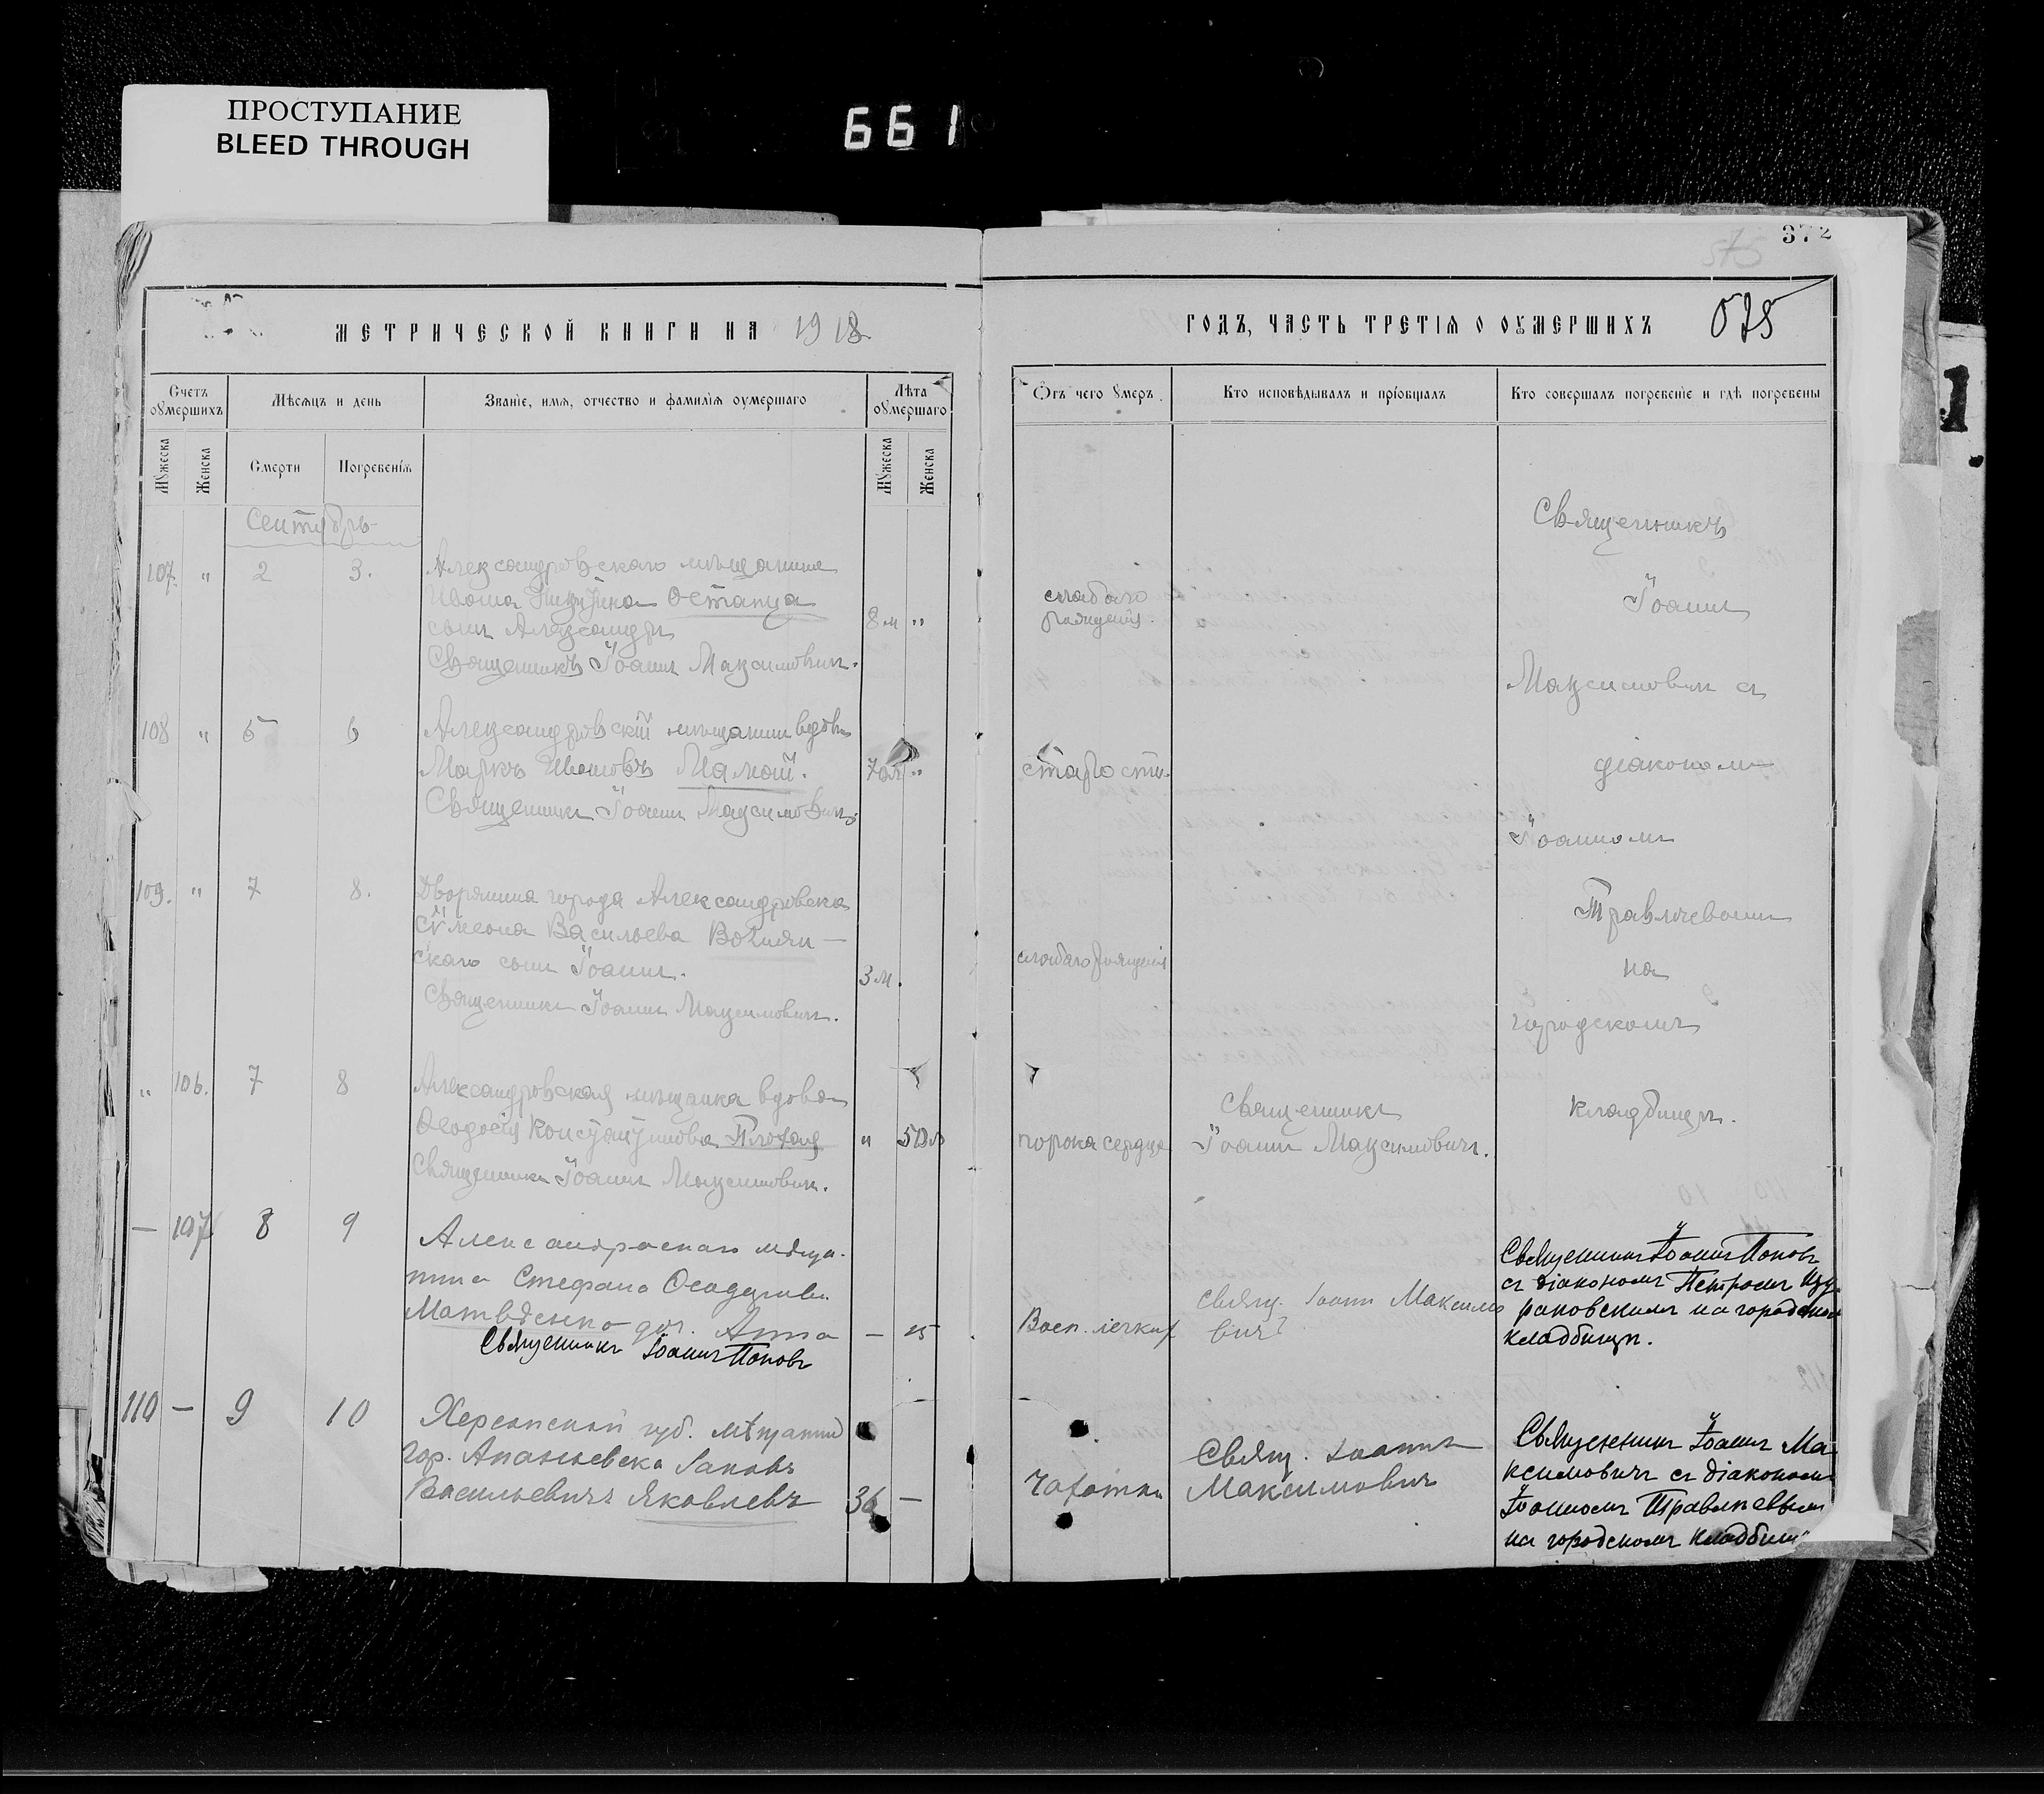 ПРОСТУПАНИЕ
BLEED THROUGH
661
372
575
МЕТРИЧЕСКОЙ КНИГИ НА 1918
ГОДЪ, ЧАСТЬ ТРЕТІЯ О ОУМЕРШИХЪ
575
Счетъ оумершихъ
Мѣсяцъ и день
Званіе, имя, отчество и фамилія оумершаго
Лѣта оумершаго
Отъ чего умеръ.
Кто исповѣдывалъ и пріобщалъ
Кто совершалъ погребеніе и гдѣ погребены
Мужеска
Женска
Смерти
Погребенія
Мужеска
Женска
Сентябрь
107. " 2 3.
Александровскаго мѣщанина
Ивана Никитина Остапца
сынъ Александръ
Священникъ Іоаннъ Максимовичъ.
8 м "
слабаго
рожденія.
108 " 5 6
Александровскій мѣщанинъ вдовъ
Маркъ Ивановъ Мамай.
Священникъ Іоаннъ Максимовичъ.
70 л "
старости
109. " 7 8.
Дворянина города Александровска
Сѵмеона Васильева Волян-
скаго сынъ Іоаннъ.
Священникъ Іоаннъ Максимовичъ.
3 м.
слабаго рожденія
" 106. 7 8
Александровская мѣщанка вдова
Ѳеодосія Константинова Плохая
Священникъ Іоаннъ Максимовичъ.
" 50 л
порока сердца
Священникъ
Іоаннъ Максимовичъ.
Священникъ
Іоаннъ
Максимовичъ съ
діакономъ
Іоанномъ
Травлѣевымъ
на
городскомъ
кладбищѣ.
— 107 8 9
Александровскаго мѣща-
нина Стефана
Матвѣенко доч. Анна
Священникъ Іоаннъ Поповъ
— 15
Восп. легких
Свящ. Іоаннъ Максимо
вичъ
Священникъ Іоаннъ Поповъ
съ діакономъ Петромъ
на городском
кладбищѣ.
110 — 9 10
Херсонской губ. мѣщанин
гор. Ананьевска Іаковъ
Васильевичъ Яковлевъ
36 —
Чахотки
Свящ. Іоаннъ
Максимовичъ
Священникъ Іоаннъ Ма-
ксимовичъ съ діакономъ
Іоанномъ Травлѣевым
на городскомъ кладбищѣ